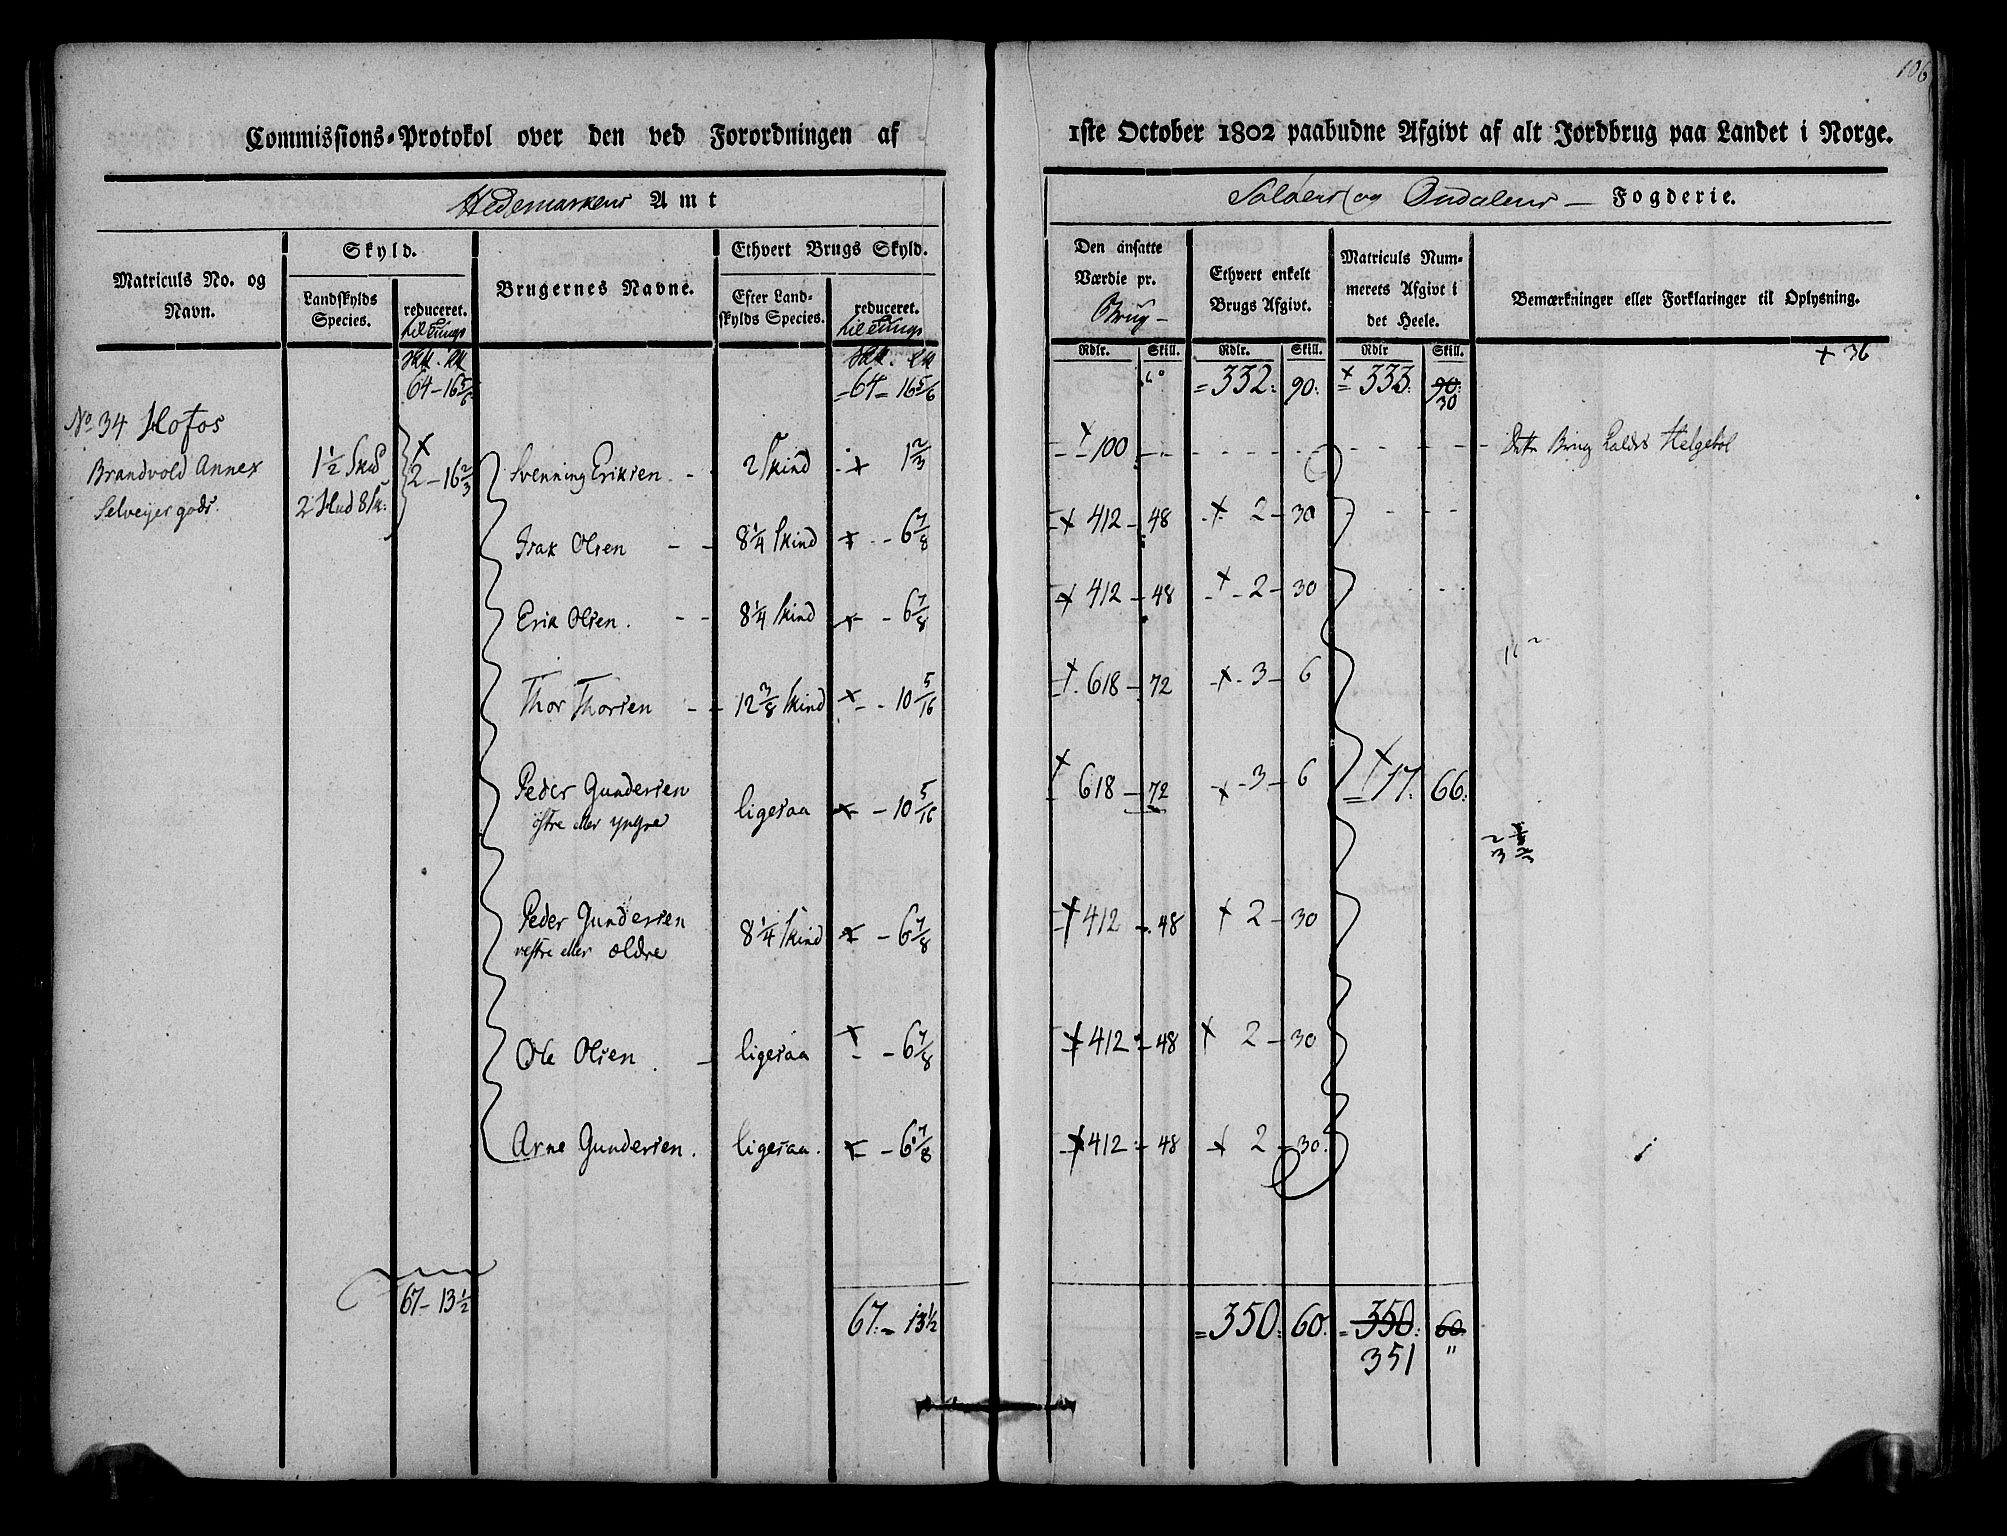 106
Commissions-Protokol over den ved Forordningen af 1ste October 1802 paabudne Afgivt af alt Jordbrug paa Landet i Norge.
Hedemarkens Amt
Soløers og Oudalens – Fogderie.
Matriculs No. og Navn.
Skyld.
Landskylds Species.
reduceret.
til Tunge
Brugernes Navne.
Ethvert Brugs Skyld.
Efter Landskylds Species.
reduceret.
til Tunge
Den ansatte Værdie pr. Brug –
Ethvert enkelt Brugs Afgivt.
Matriculs Nummerets Afgivt i det Heele.
Bemærkninger eller Forklaringer til Oplysning.
Rdlr. Skill. Rdlr. Skill. Rdlr Skill.
+ 36
64 – 16 5/6
– 64 – 16 5/6
= 332: 90: + 333: 90: 30
No 34 Hofos
Brandvold Annex
Selveyer gods.
1½ Skpd
2 Hud 8 Sk:
+ 2 – 16 2/3
Svenning Eriksen. – 2 Skind + 1 2/3 + 100 – Dette Brug kaldes Helgebol
Isak Olsen – – 8¼ Skind + – 6 7/8 + 412 – 48 + 2 – 30
Erik Olsen. – – 8¼ Skind + – 6 7/8 + 412 – 48 + 2 – 30
Thor Thorsen – – 12 3/8 Skind + – 10 5/16 + 618 – 72 + 3 – 6
Peder Gundersen ligesaa + – 10 5/16 + 618 – 72 + 3 – 6 + 17: 66:
østre eller yngre
Peder Gundersen 8¼ Skind + – 6 7/8 + 412 – 48 + 2 – 30
vestre eller ældre
Ole Olsen. – ligesaa + – 6 7/8 + 412 – 48 + 2 – 30
Arne Gundersen. ligesaa. + – 6 7/8 + 412 – 48 + 2 – 30.
67 – 13 ½
67: – 13 ½
= 350: 60. = 350: 60
351 "